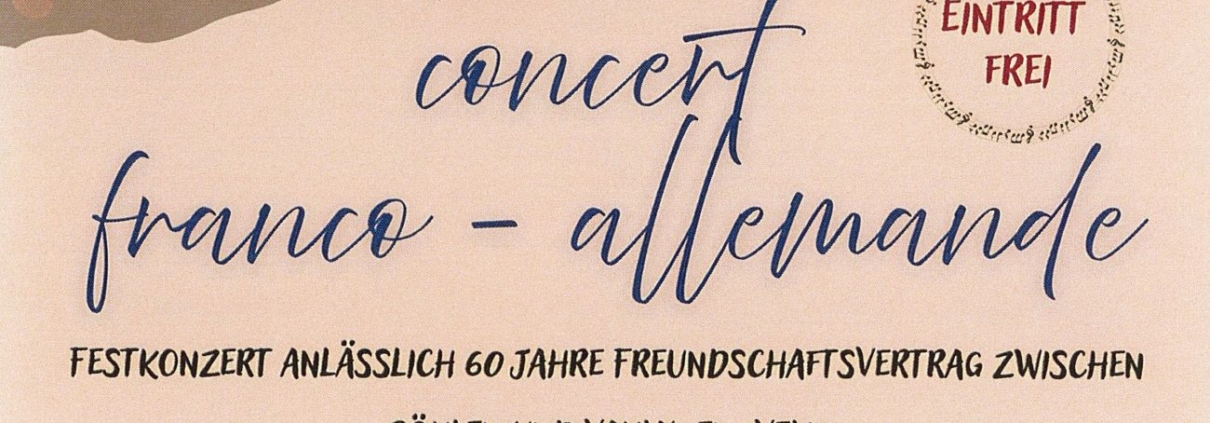 EINTRITT
FREI
concert
franco - allemande
FESTKONZERT ANLÄSSLICH 60 JAHRE FREUNDSCHAFTSVERTRAG ZWISCHEN